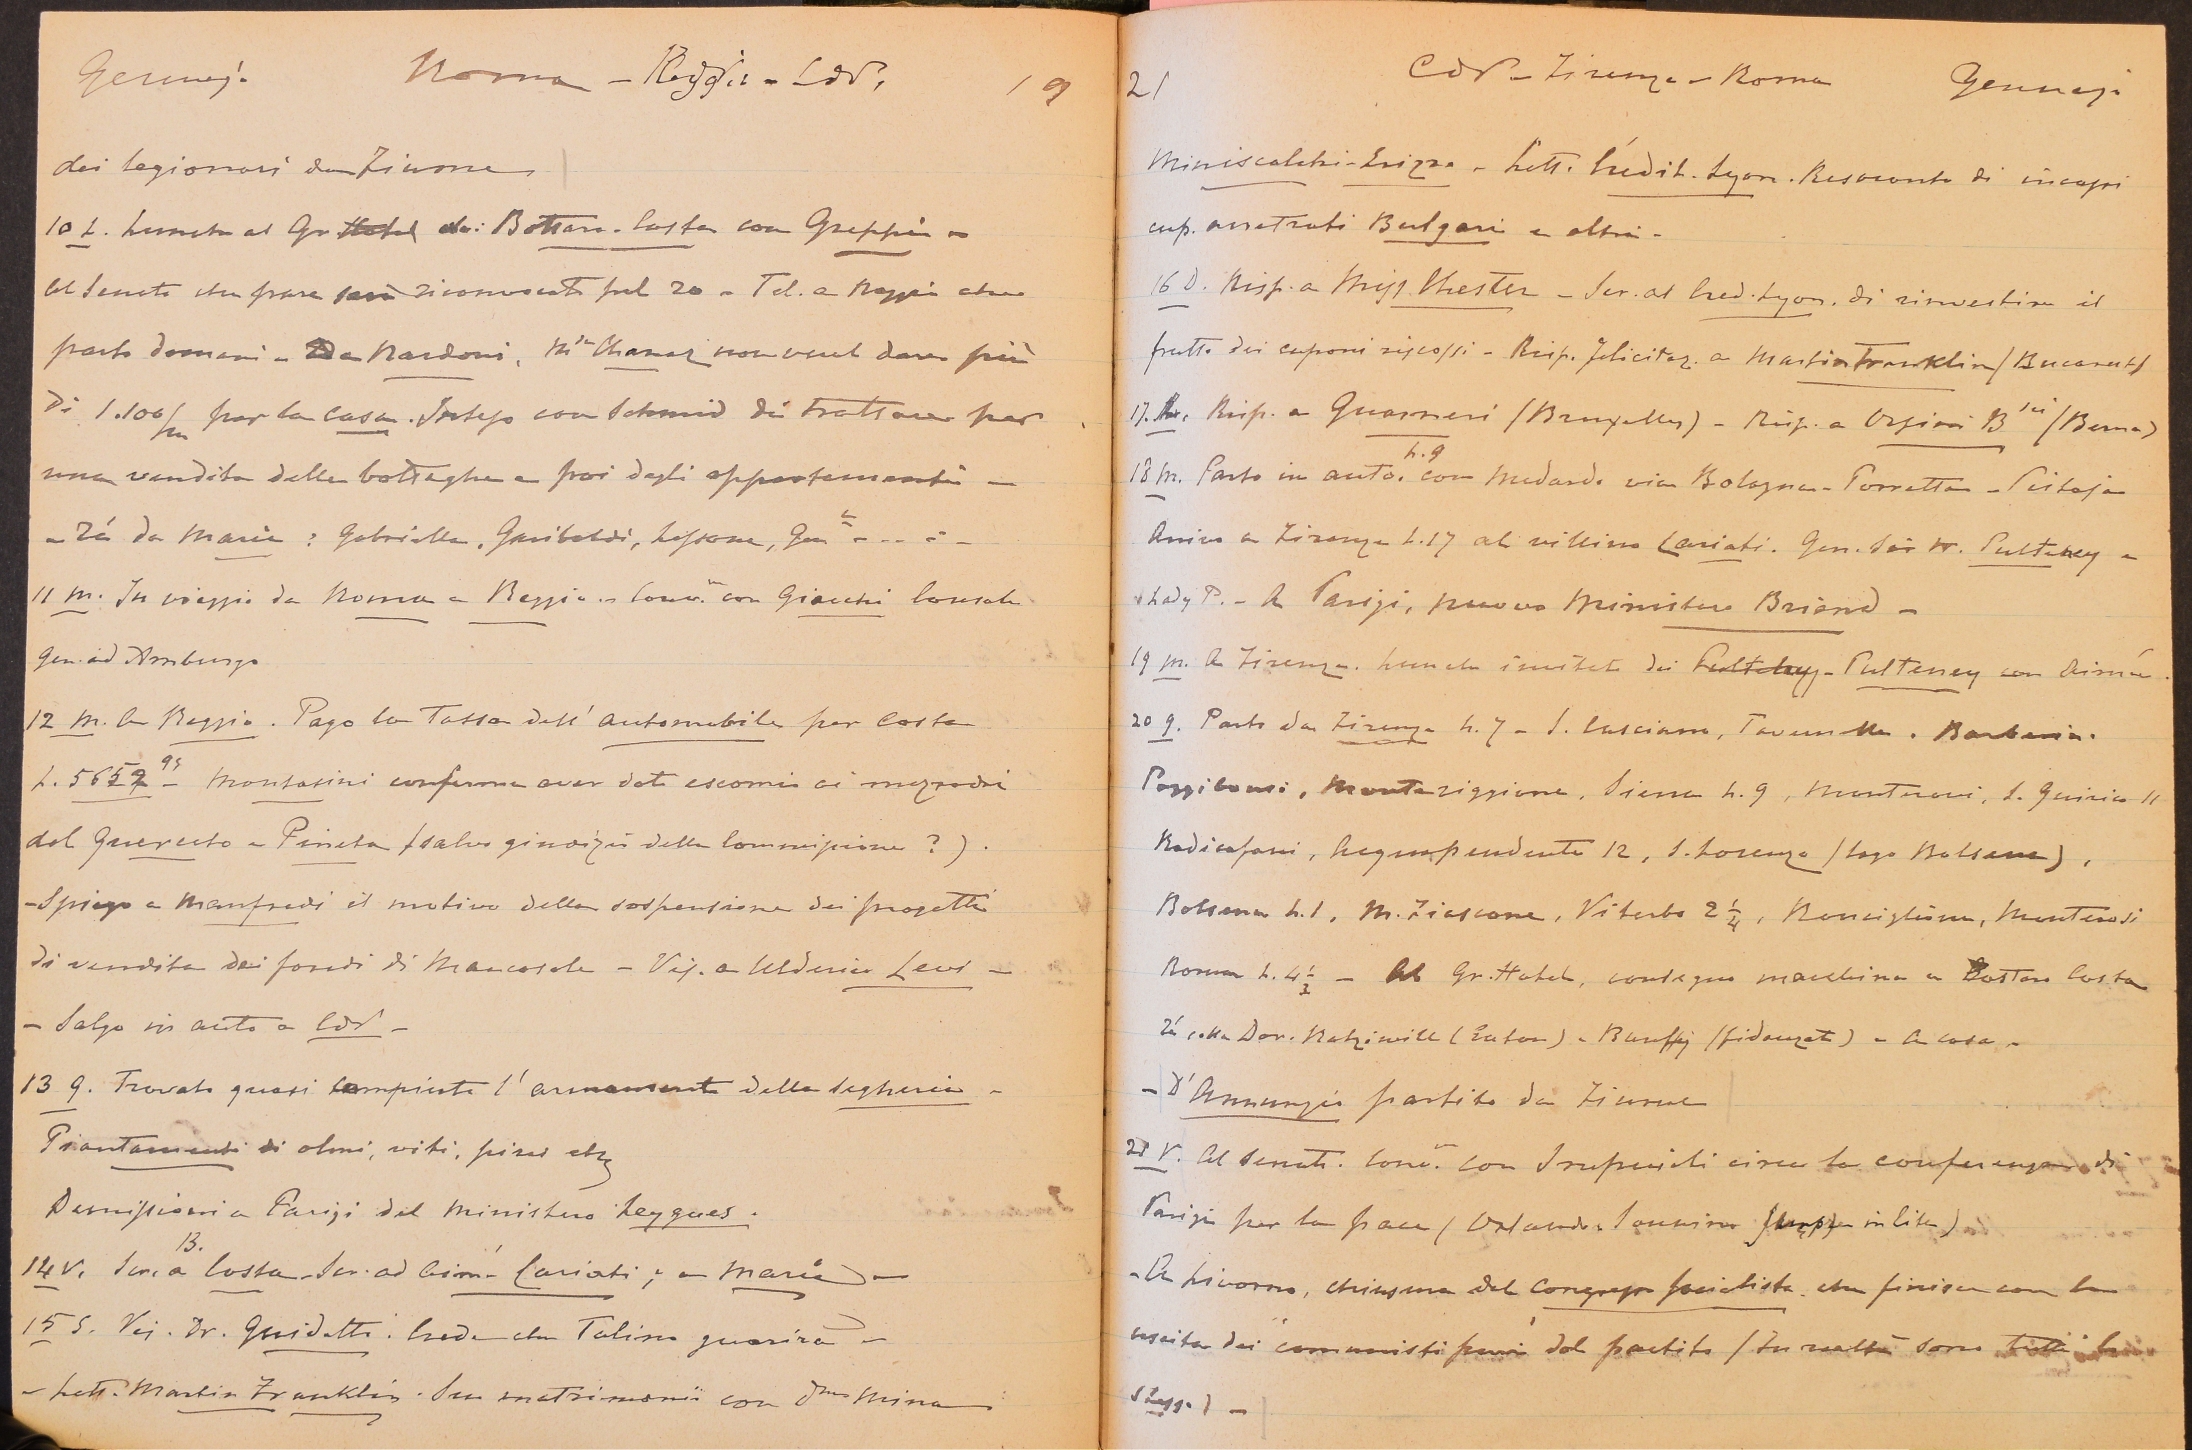 Gennajo Roma - Reggio - CdV. 19
dei legionari da Fiume
10 L. Lunch al Gr. Hotel dei Bottaro-Costa con Greppi -
Al Senato che pare sarà riconvocato pel 20 - Tel. a Reggio che
parto domani - Da Nardoni, Mr Chanaz non vuol dare più
di 1.100/m per la casa. Inteso con Schmid di trattare per
una vendita delle botteghe e poi degli appartamenti -
- Thé da Maria: Gabriella, Garibaldi, Lessona,
11 M. In viaggio da Roma a Reggio - Conv.ne con Giacchi Console
Gen. ad Amburgo
12 M. A Reggio. Pago la Tassa dell'automobile per Costa
L. 5652 95 - Montasini conferma aver dato escomio ai mezzadri
del Querceto e Pineta (salvo giudizii della Commissione?).
- Spiego a Manfredi il motivo della sospensione dei progetti
di vendita dei fondi di Mancasale - Vis. a Ulderico Levi -
- Salgo in auto a CdV -
13 G. Trovato quasi compiuto l'armamento della segheria -
Piantamenti di olmi, viti, pini etc
Demissioni a Parigi del Ministero Leygues.
14 V. Scr. a B. Costa - Scr. ad Aim. Cariati; a Maria -
15 S. Vis. Dr. Guidetti. Crede che Talino guarirà -
- Lett. Martin Franklin. Suo matrimonio con dna Mina
21 CdV - Firenze - Roma Gennajo
Miniscalchi-Erizzo - Lett. Crédit. Lyon. Resoconto di incassi
cup. arretrati Bulgari e altri -
16 D. Risp. a Miss Chester - Scr. al Cred. Lyon. di rinvestire il
frutto dei cuponi riscossi - Risp. felicitaz. a Martin Franklin (Bucarest)
17. L. Risp. a Guarneri (Bruxelles) - Risp. a Orsini Bni (Berna)
18 M. Parto in auto h. 9 con Medardo via Bologna - Porretta - Pistoja
Arrivo a Firenze h. 17 al villino Cariati. Gen. Sir W. Pulteney e
Lady P. - A Parigi, nuovo Ministero Briand -
19 M. A Firenze. Lunch invitato dai Pulteney - Pulteney con Aimée.
20 G. Parto da Firenze h. 7 - S. Casciano, Tavernelle, Barberino.
Poggibonsi, Monteriggione, Siena h. 9, Monteroni, S. Quirico 11
Radicofani, Acquapendente 12, S. Lorenzo (lago Bolsena),
Bolsena h. 1, M. Fiascone, Viterbo 2 1/4, Ronciglione, Monterosi
Roma h. 4 1/2 - Al Gr. Hotel, consegno macchina a Bottaro Costa
Thé colla Dor. Radziwill (Eaton) - Banffy (fidanzato) - A casa -
- D'Annunzio partito da Fiume
21 V. Al Senato. Conv.ne con Imperiali circa la conferenza di
Parigi per la pace (Orlando e Sonnino sempre in lite)
- A Livorno, chiusura del congresso socialista che finisce con la
uscita dei "comunisti puri" dal partito (In realtà sono tutti lo
stesso) -